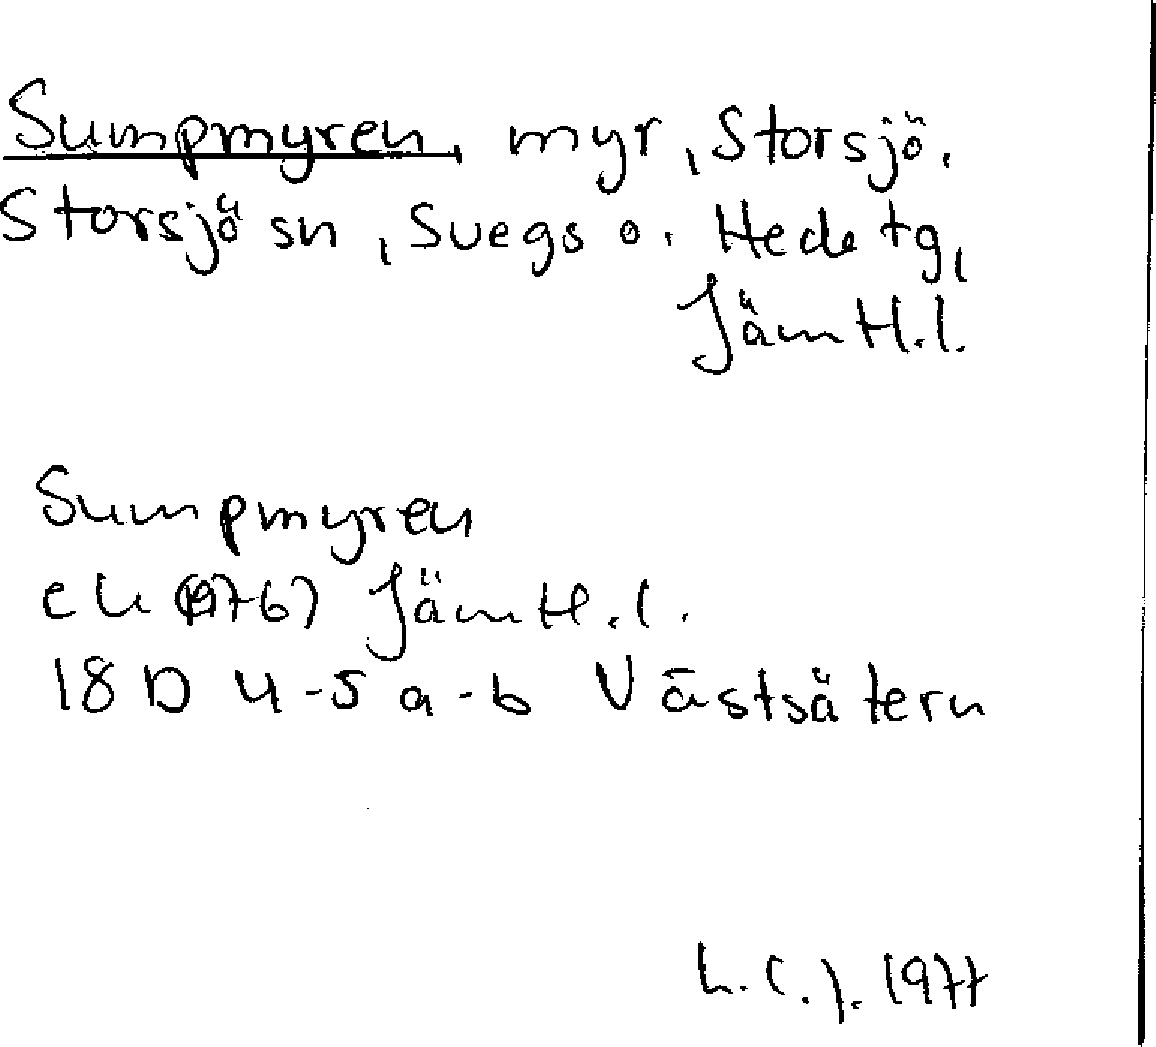 Sumpmyren, myr, Storsjö,
Storsjö sn, Svegs o. Hede tg,
Jämtl.l.
Sumpmyren
ek (1976) Jämtl.l.
18 D 4-5 a-b Västsätern
L.C.J. 1977